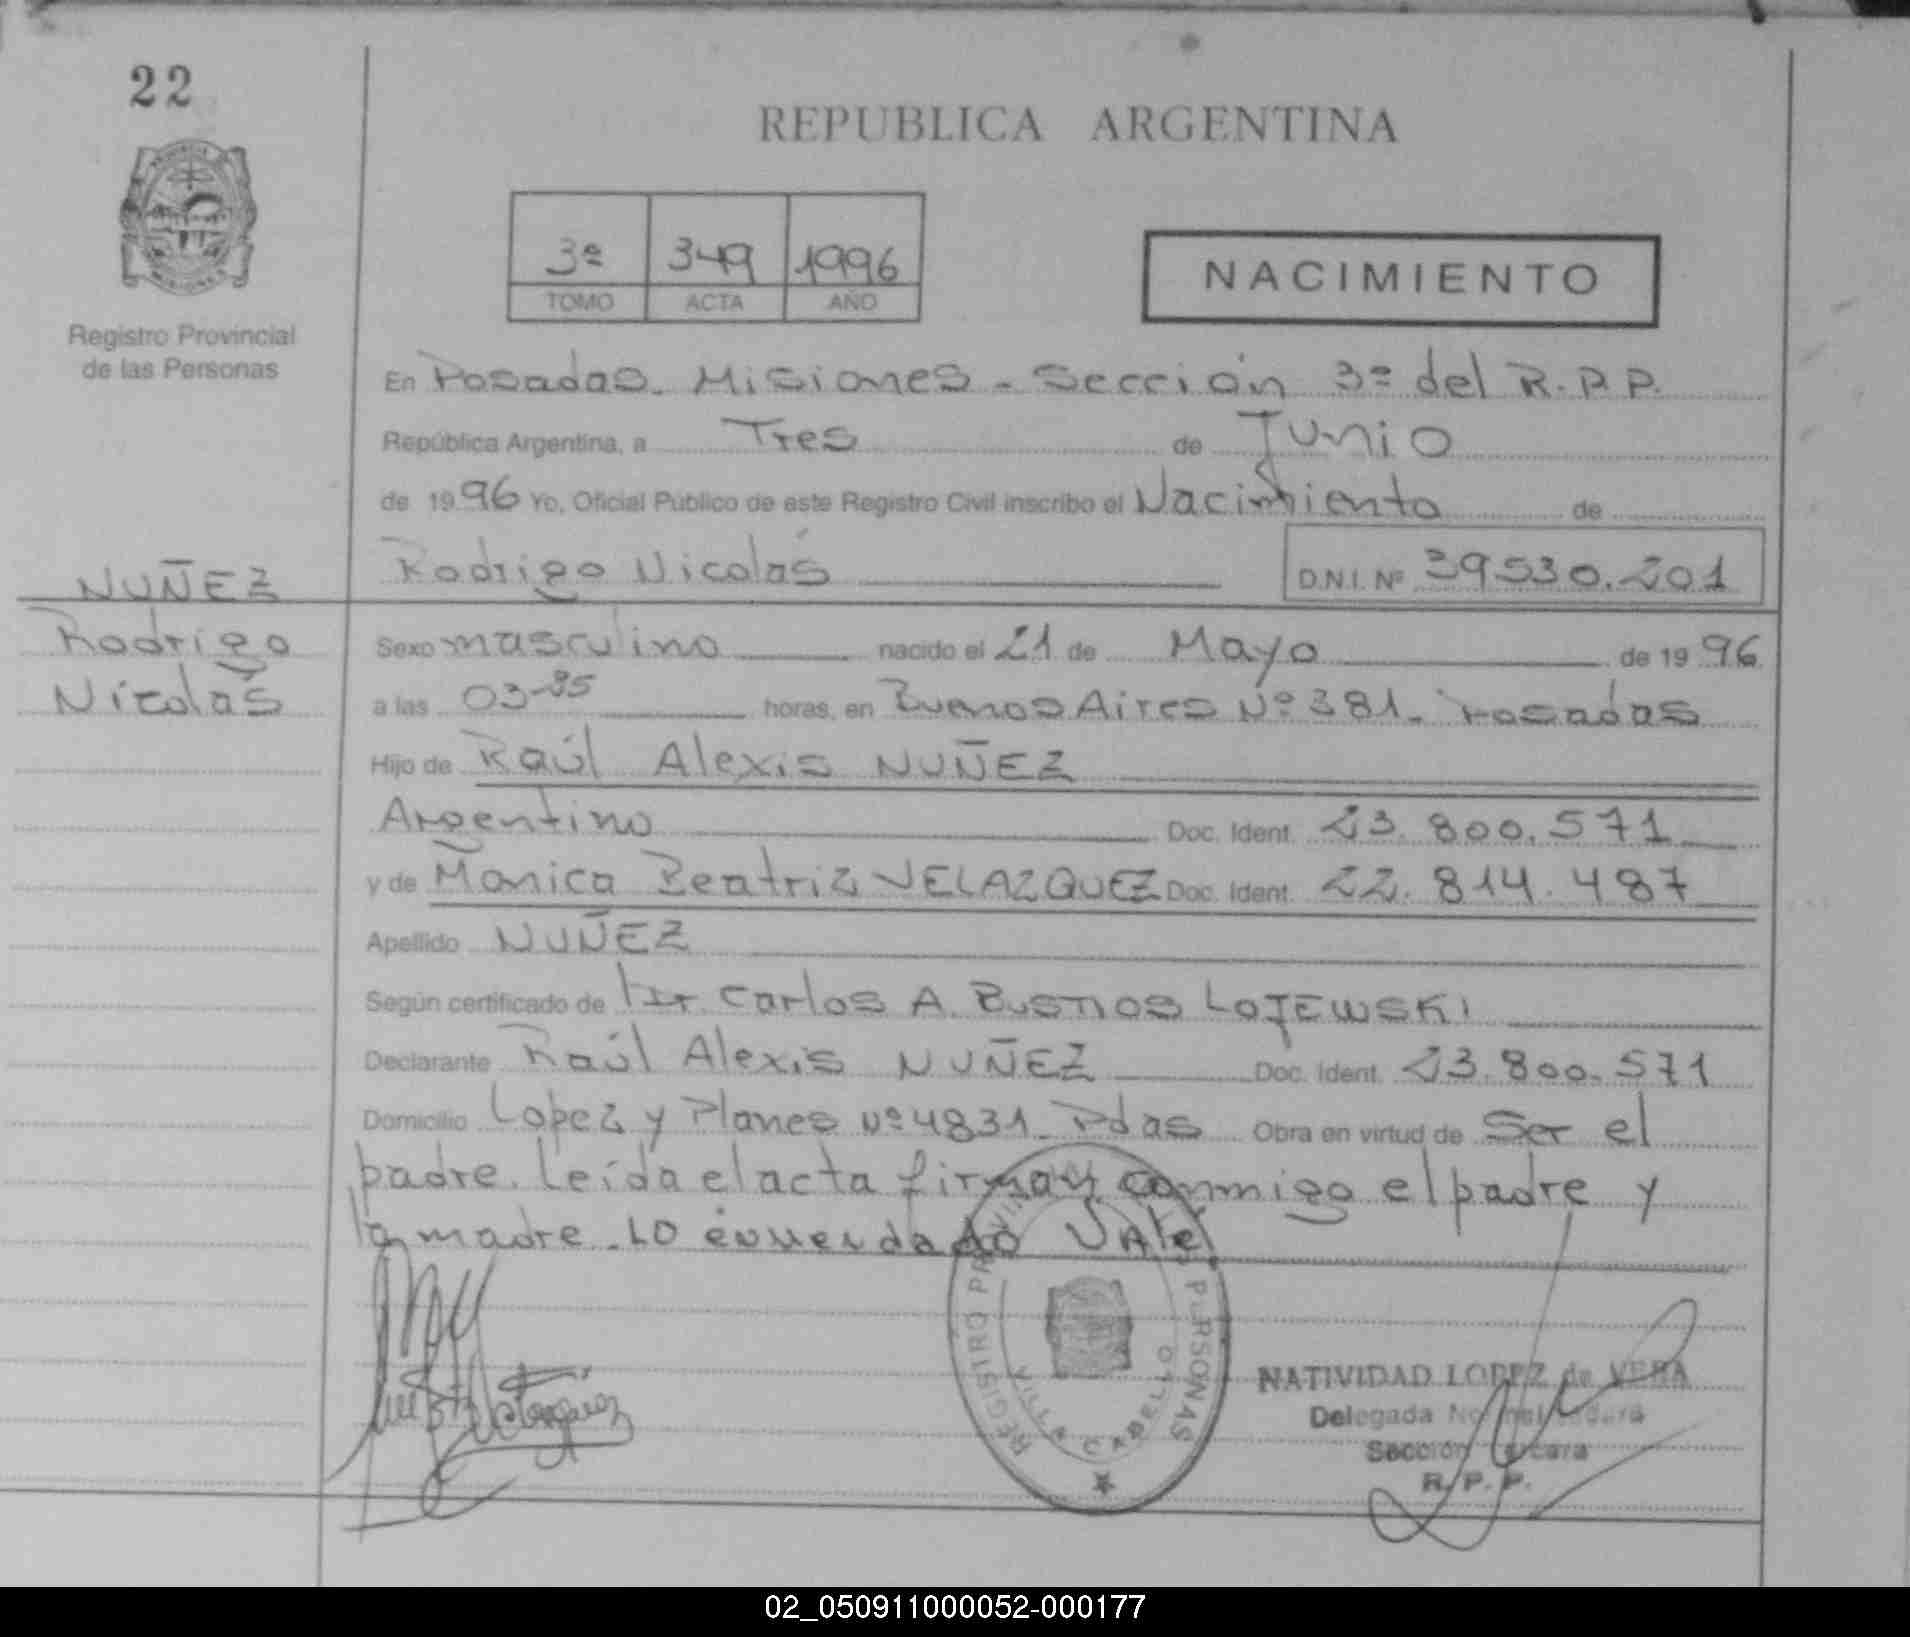 22
REPUBLICA ARGENTINA
3ª 349 1996
TOMO ACTA AÑO
NACIMIENTO
Registro Provincial
de las Personas
En Posadas. Misiones - Sección 3ª del R.P.P.
República Argentina, a Tres de Junio
de 1996 Yo, Oficial Público de este Registro Civil inscribo el Nacimiento de
Rodrigo Nicolás D.N.I. Nº 39530.201
NUÑEZ
Rodrigo
Nicolás
Sexo masculino nacido el 21 de Mayo de 1996
a las 03- horas, en Buenos Aires Nº 381. Posadas
Hijo de Raúl Alexis NUÑEZ
Argentino Doc. Ident. 23.800.571
y de Mónica Beatriz VELAZQUEZ Doc. Ident. 22.814.487
Apellido NUÑEZ
Según certificado de Dr. Carlos A. BUSTIOS LOJEWSKI
Declarante Raúl Alexis NUÑEZ Doc. Ident. 23.800.571
Domicilio Lopez y Planes Nº 4831 Pdas Obra en virtud de Ser el
padre. Leída el acta firman conmigo el padre y
la madre. LO enmendado Vale
REGISTRO PROVINCIAL PERSONAS
VILLA CABELLO
NATIVIDAD LOPEZ de VERA
Delegada
Sección Tercera
R. P. P.
02_050911000052-000177